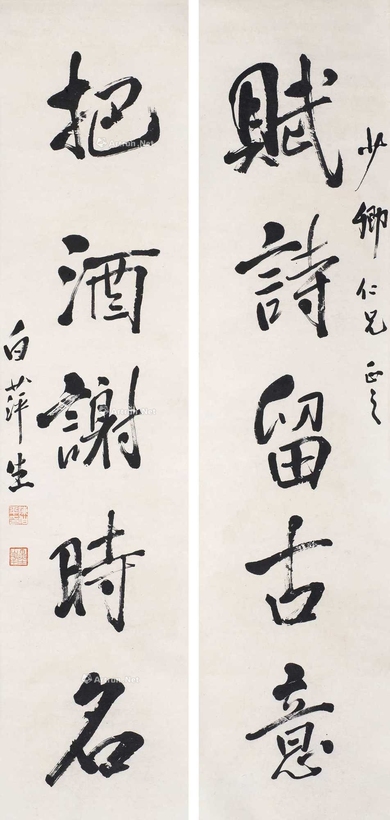 少卿仁兄正之
賦詩留古意
把酒謝時名
白萍生